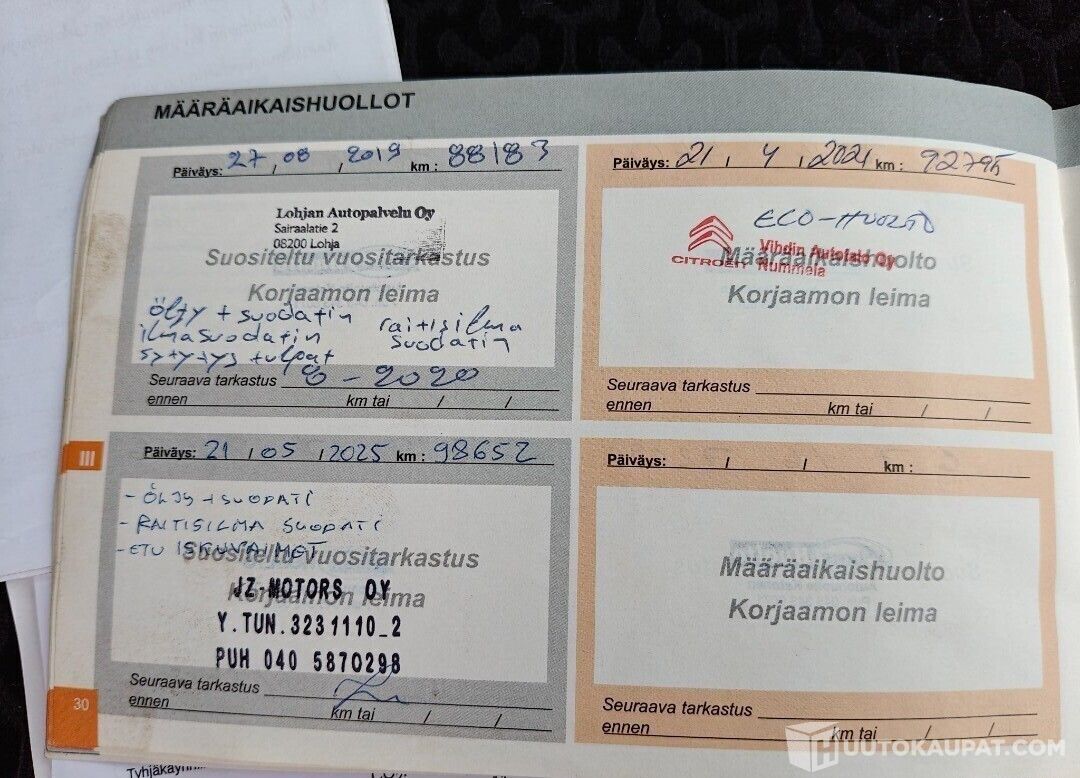 MÄÄRÄAIKAISHUOLLOT
Päiväys: 27 / 08 / 2019 km: 88183
Lohjan Autopalvelu Oy
Sairaalatie 2
08200 Lohja
Suositeltu vuositarkastus
Korjaamon leima
öljy + suodatin
raitisilma
ilmasuodatin
suodatin
sytytys tulpat
Seuraava tarkastus 8 - 2020
ennen km tai / /
Päiväys: 21 / 4 / 2021 km: 92795
ECO-HUOLTO
CITROËN
Vihdin Autotalo Oy
Nummela
Määräaikaishuolto
Korjaamon leima
Seuraava tarkastus
ennen km tai / /
III
Päiväys: 21 / 05 / 2025 km: 98652
- ÖLJY + SUODATI
- RAITISILMA SUODATI
- ETU ISKUVAIMET
Suositeltu vuositarkastus
JZ-MOTORS OY
Korjaamon leima
Y.TUN.3231110_2
PUH 040 5870298
Seuraava tarkastus
ennen km tai / /
30
Päiväys: / / km:
Määräaikaishuolto
Korjaamon leima
Seuraava tarkastus
ennen km tai / /
HUUTOKAUPAT.COM